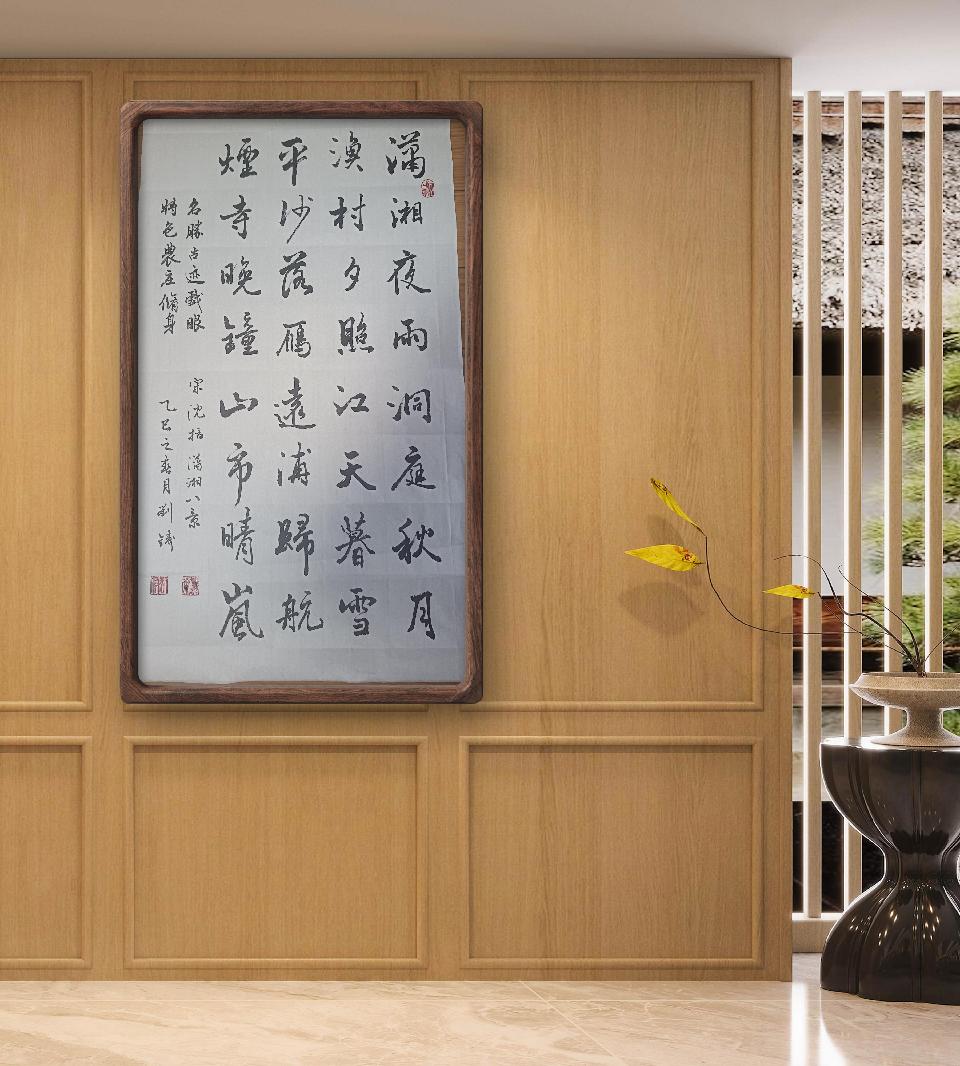 瀟湘夜雨洞庭秋月
漁村夕照江天暮雪
平沙落雁遠浦歸航
煙寺晚鐘山市晴嵐
名勝古迹眼
宋沈括瀟湘八景
特色農庄脩身
乙巳之春月